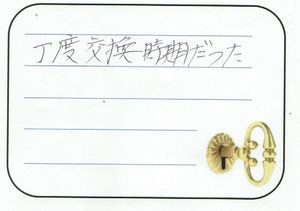 丁度交換時期だった